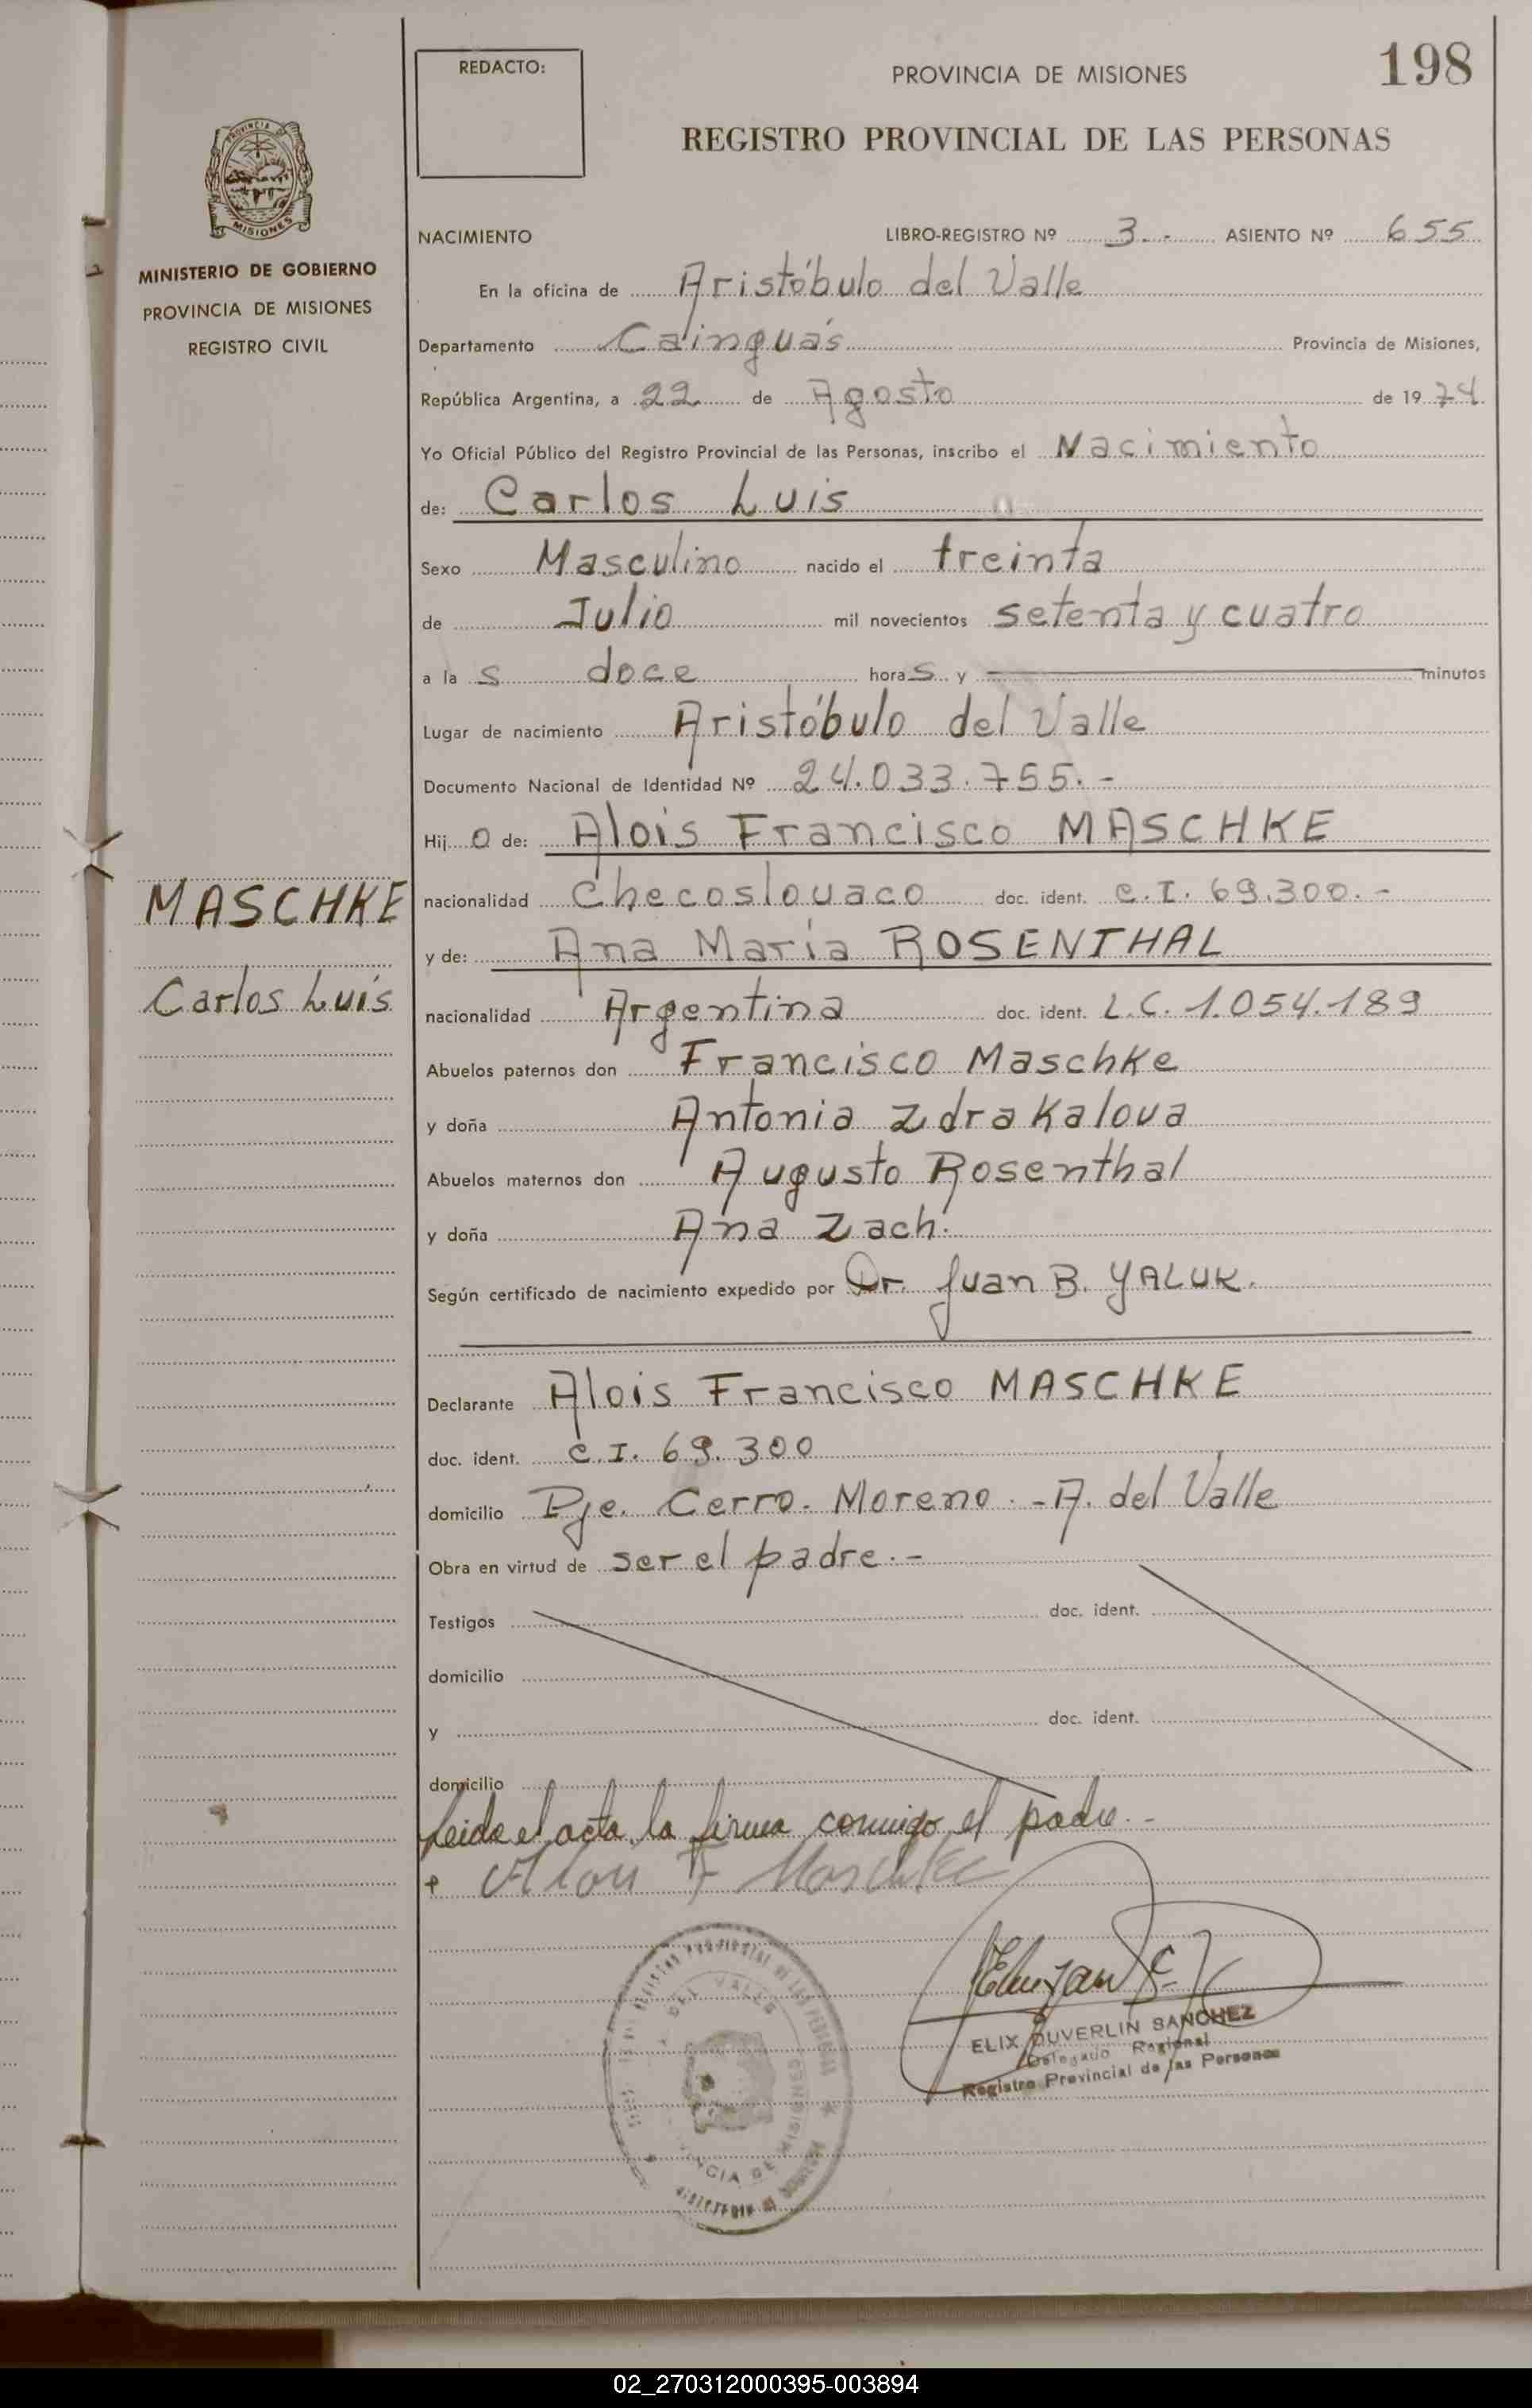 REDACTO:
PROVINCIA DE MISIONES
198
REGISTRO PROVINCIAL DE LAS PERSONAS
PROVINCIA DE
MISIONES
MINISTERIO DE GOBIERNO
PROVINCIA DE MISIONES
REGISTRO CIVIL
NACIMIENTO LIBRO-REGISTRO Nº 3.- ASIENTO Nº 655
En la oficina de Aristóbulo del Valle
Departamento Cainguás Provincia de Misiones,
República Argentina, a 22 de Agosto de 1974.
Yo Oficial Público del Registro Provincial de las Personas, inscribo el Nacimiento
de: Carlos Luis
Sexo Masculino nacido el treinta
de Julio mil novecientos setenta y cuatro
a la s doce hora s y minutos
Lugar de nacimiento Aristóbulo del Valle
Documento Nacional de Identidad Nº 24.033.755.-
Hij o de: Alois Francisco MASCHKE
nacionalidad Checoslovaco doc. ident. C.I. 69.300.-
y de: Ana María ROSENTHAL
nacionalidad Argentina doc. ident. L.C. 1.054.189
MASCHKE
Carlos Luis
Abuelos paternos don Francisco Maschke
y doña Antonia Zdrakalova
Abuelos maternos don Augusto Rosenthal
y doña Ana Zach.
Según certificado de nacimiento expedido por Dr. Juan B. YALUK.
Declarante Alois Francisco MASCHKE
doc. ident. C.I. 69.300
domicilio Pje. Cerro. Moreno. - A. del Valle
Obra en virtud de ser el padre.-
Testigos doc. ident.
domicilio
y doc. ident.
domicilio
Leida el acta, la firma conmigo el padre.-
Alois F Maschke
ELIX DUVERLIN SANCHEZ
Delegado Regional
Registro Provincial de las Personas
DEL VALLE
MISIONES
02_270312000395-003894